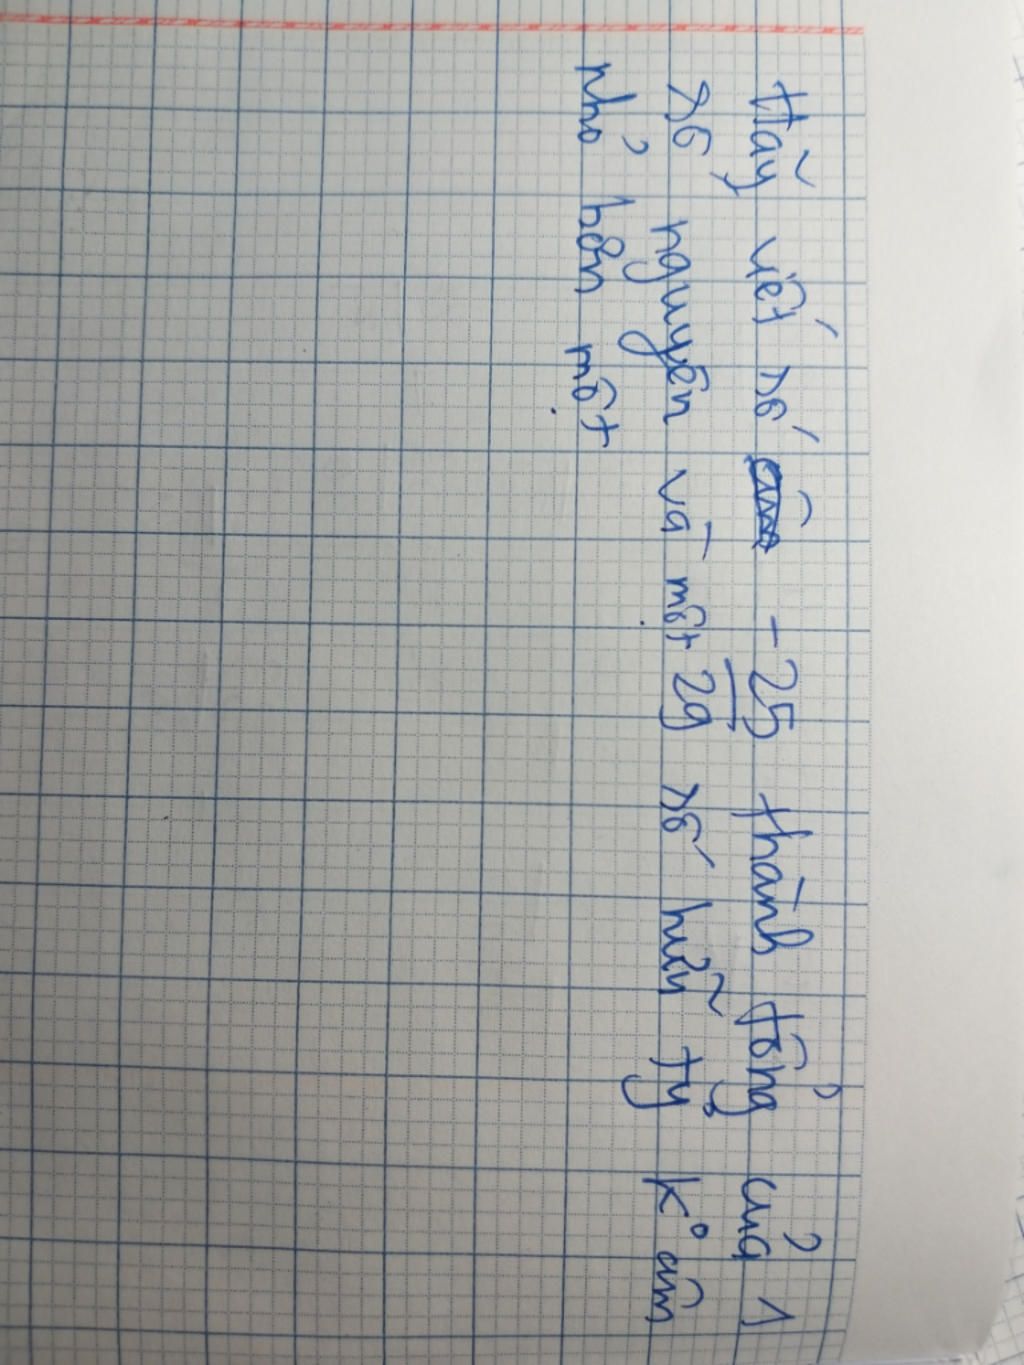 Hãy viết số -25/29 thành tổng của 1
số nguyên và một số hữu tỷ k° âm
nhỏ hơn một